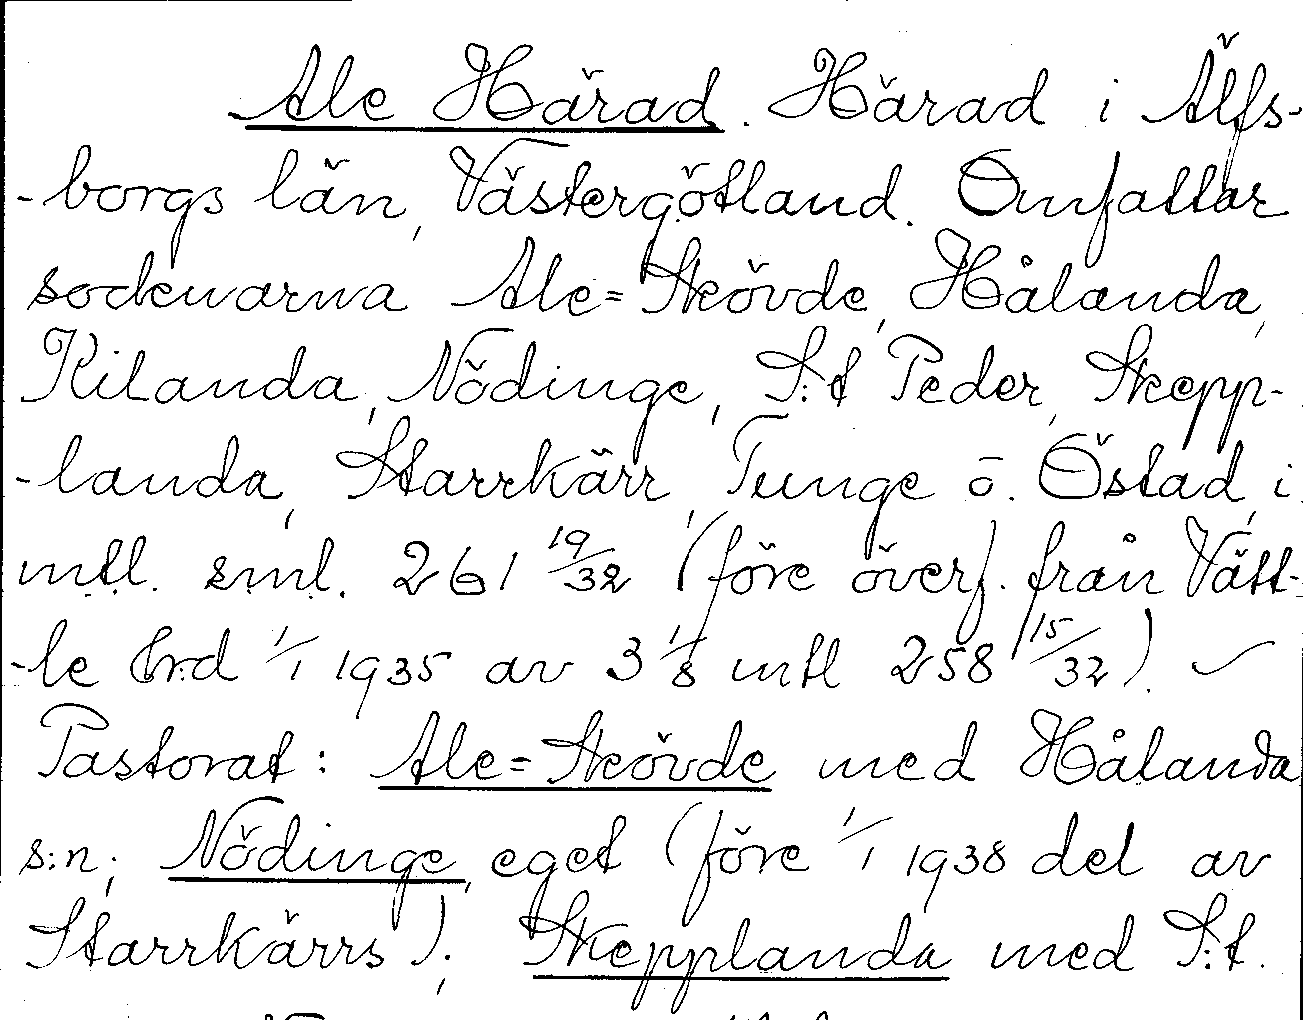 Ale Härad. Härad i Älfs-
-borgs län, Västergötland. Omfattar
socknarna Ale=Skövde, Hålanda,
Kilanda, Nödinge, S:t Peder, Skepp-
-landa, Starrkärr, Tunge o. Östad, i
mtl. sml. 261 19/32 (före överf. från Vätt-
-le hrd 1/1 1935 av 3 1/8 mtl 258 15/32).
Pastorat: Ale=Skövde med Hålanda
s:n; Nödinge, eget (före 1/1 1938 del av
Starrkärrs); Skepplanda med S:t.